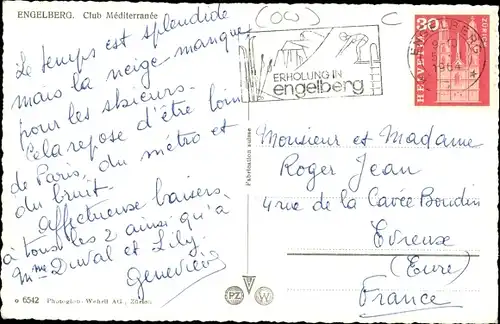 ENGELBERG. Club Méditerranée
Le temps est splendide
mais la neige manque
pour les skieurs.
Cela repose d'être loin
de Paris, du métro et
du bruit.
Affectueux baisers
à tous les 2 ainsi qu'à
Mme Duval et Lily.
Geneviève
o 6542 Photoglob-Wehrli AG., Zürich
Fabrication suisse
PZ W
(OO) C
ERHOLUNG IN
engelberg
30
HELVETIA
ZÜRICH
ENGELBERG
1964
Monsieur et Madame
Roger Jean
4 rue de la Cavée Boudin
Evreux
(Eure)
France